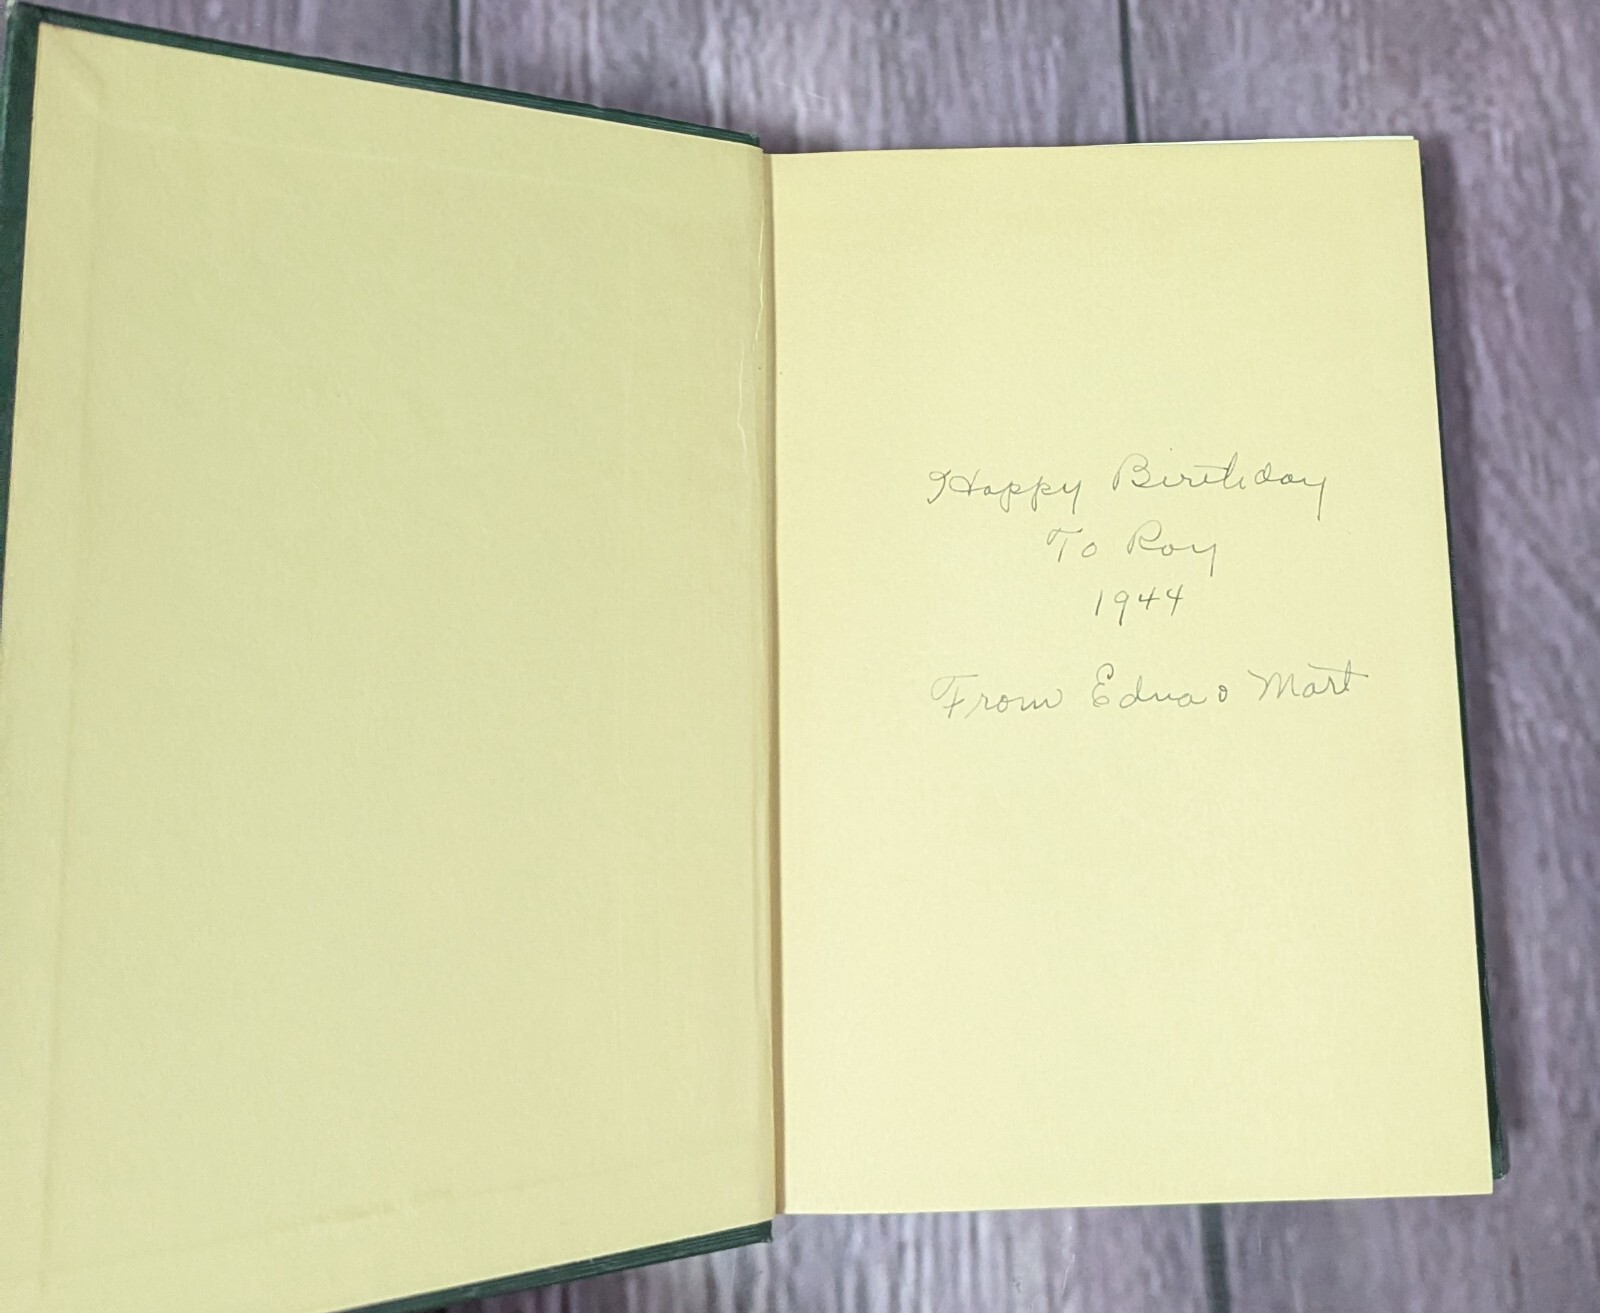 Happy Birthday
To Roy
1944
From Edna & Mart